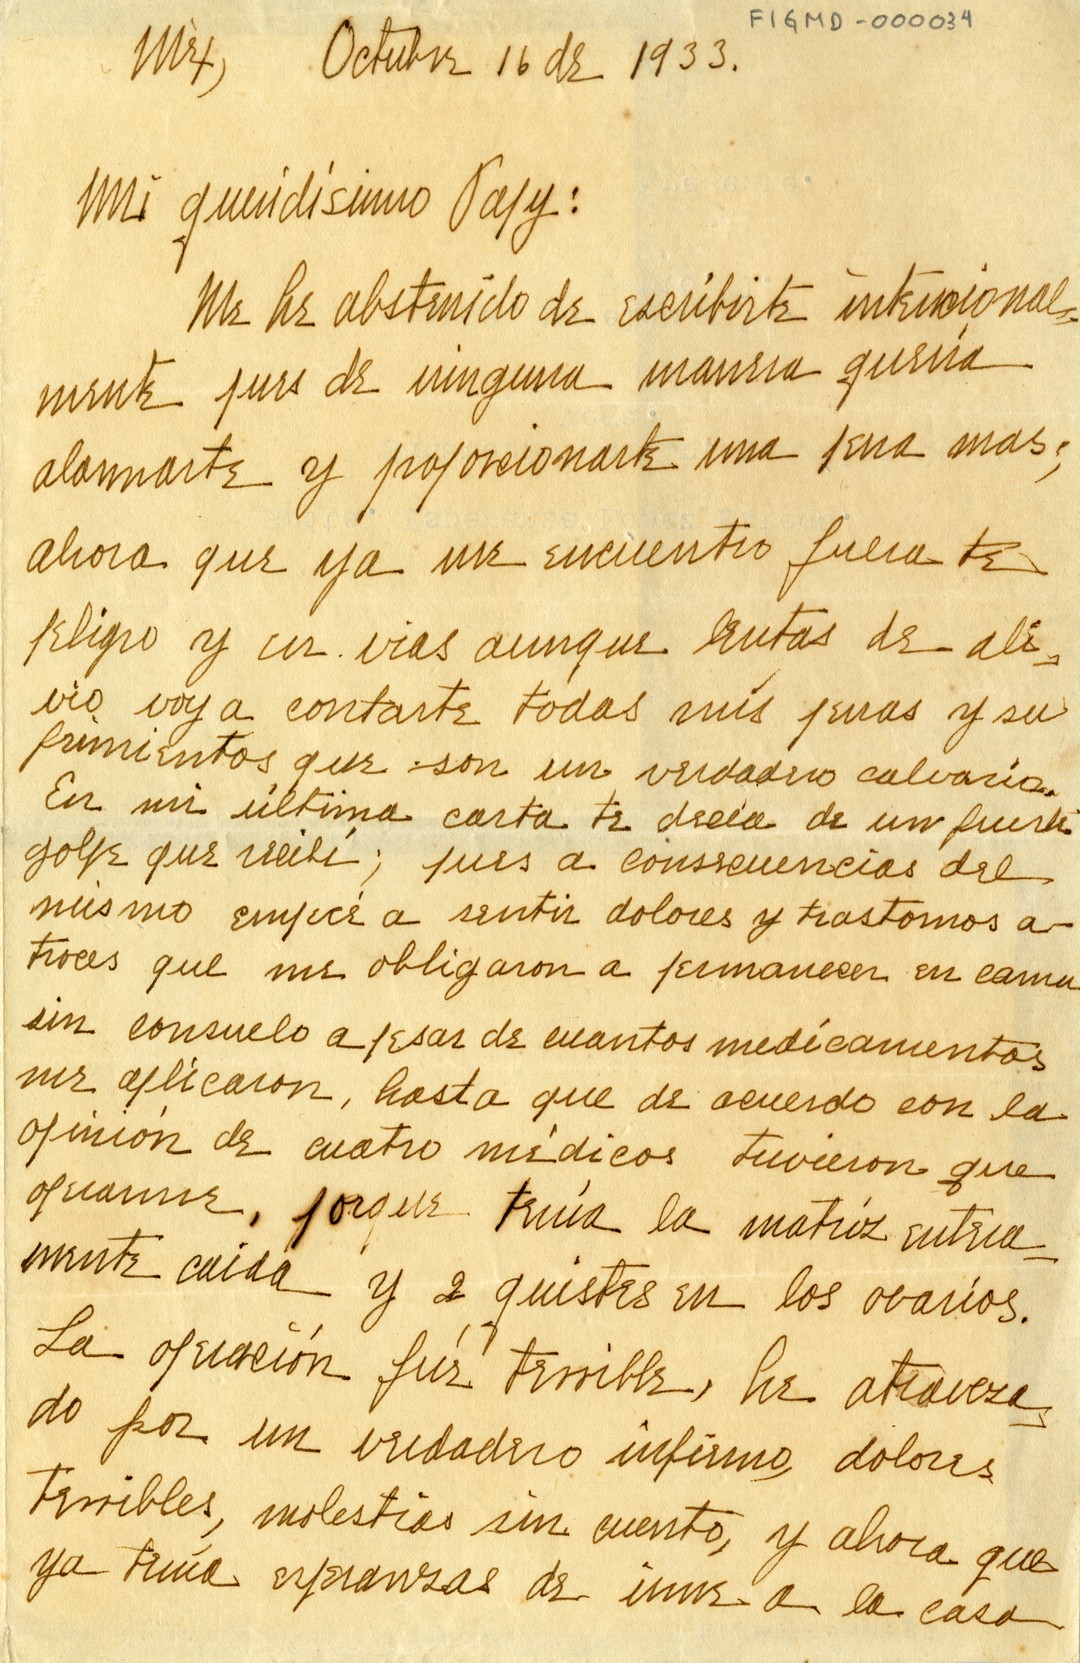 FIGMD-000034
Méx, Octubre 16 de 1933.
Mi queridísimo Papy:
Me he abstenido de escribirte intencional-
mente pues de ninguna manera quería
alarmarte y proporcionarte una pena mas;
ahora que ya me encuentro fuera te
peligro y en vias aunque lentas de ali-
vio voy a contarte todas mis penas y su
frimientos que son un verdadero calvario.
En mi última carta te decía de un fuerte
golpe que recibí; pues a consecuencias del
mismo empecé a sentir dolores y trastornos a-
troces que me obligaron a permanecer en cama
sin consuelo a pesar de cuantos medicamentos
me aplicaron, hasta que de acuerdo con la
opinión de cuatro médicos tuvieron que
operarme, porque tenía la matríz entera-
mente caida y 2 quistes en los ovarios.
La operación fué terrible, he atraveza-
do por un verdadero infierno, dolores
terribles, molestias sin cuento, y ahora que
ya tenía esperanzas de irme a la casa